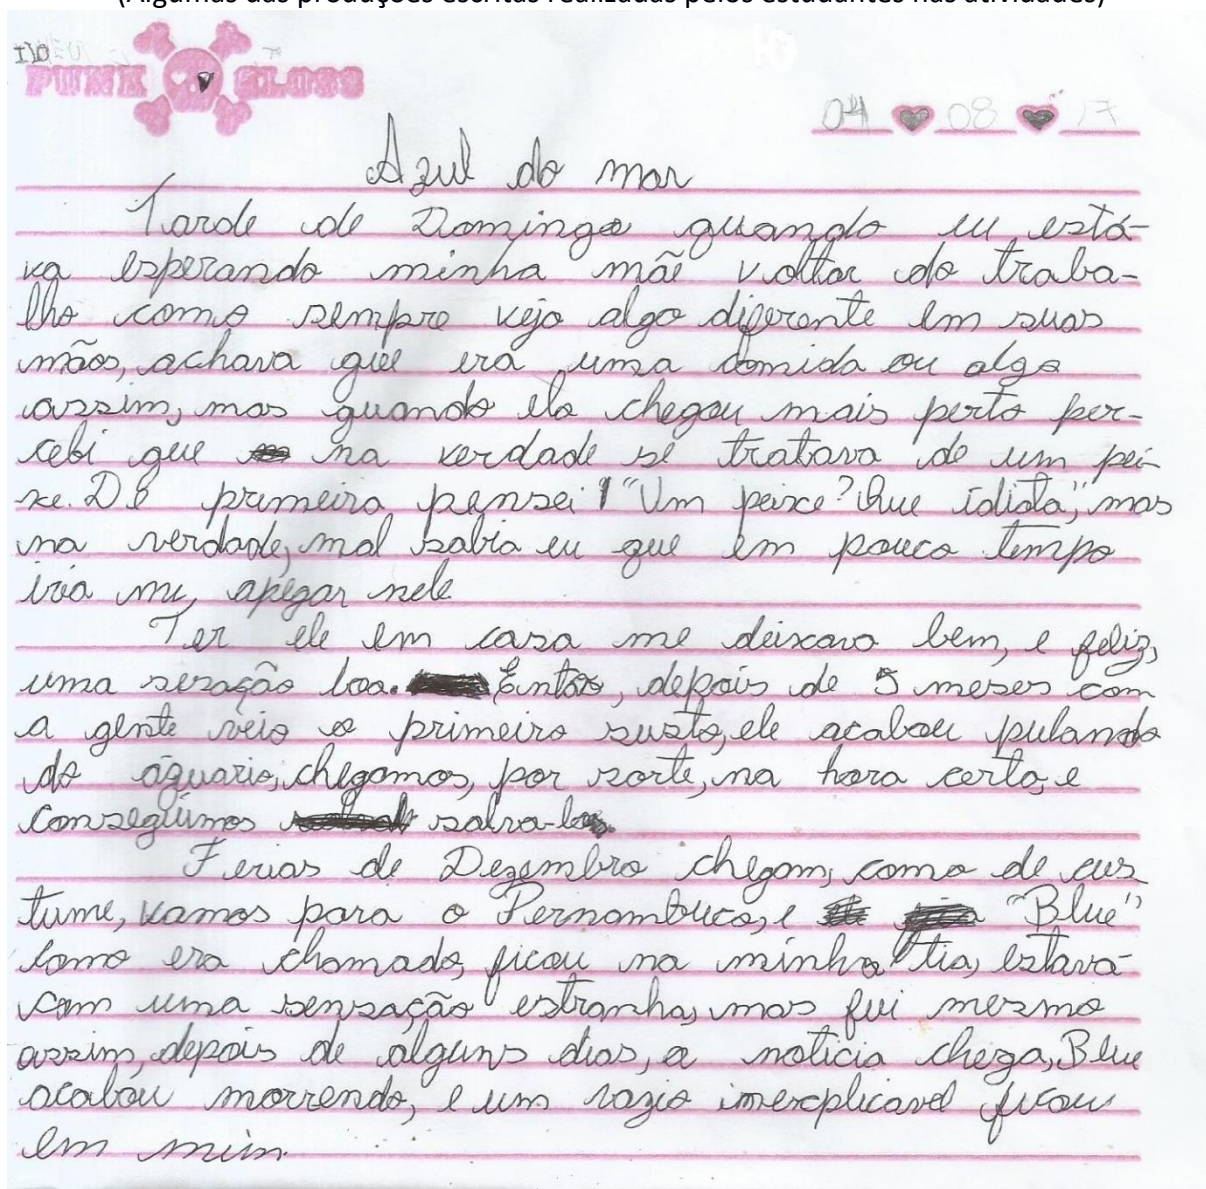 (Algumas das produções escritas realizadas pelos estudantes nas atividades)
PUNK GLOSS
04 08 17
Azul do mar
Tarde de Domingo quando eu está-
va esperando minha mãe voltar do traba-
lho como sempre vejo algo diferente em suas
mãos, achava que era uma comida ou algo
assim, mas quando ela chegou mais perto per-
cebi que na verdade se tratava de um pei-
xe. De primeira pensei! "Um peixe? Que idiota", mas
na verdade, mal sabia eu que em pouco tempo
iria me, apegar nele
Ter ele em casa me deixava bem, e feliz,
uma sesação boa. Então, depois de 5 meses com
a gente veio o primeiro susto, ele acabou pulando
do aguario, chegamos, por sorte, na hora certa, e
conseguimos salva-lo.
Ferias de Dezembro chegam, como de cus
tume, vamos para o Pernambuco, e "Blue"
como era chamado, ficou na minha tia, estava
com uma sensação estranha, mas fui mesmo
assim, depois de alguns dias, a noticia chega, Blue
acabou morrendo, e um vazio inexplicavel ficou
em mim.